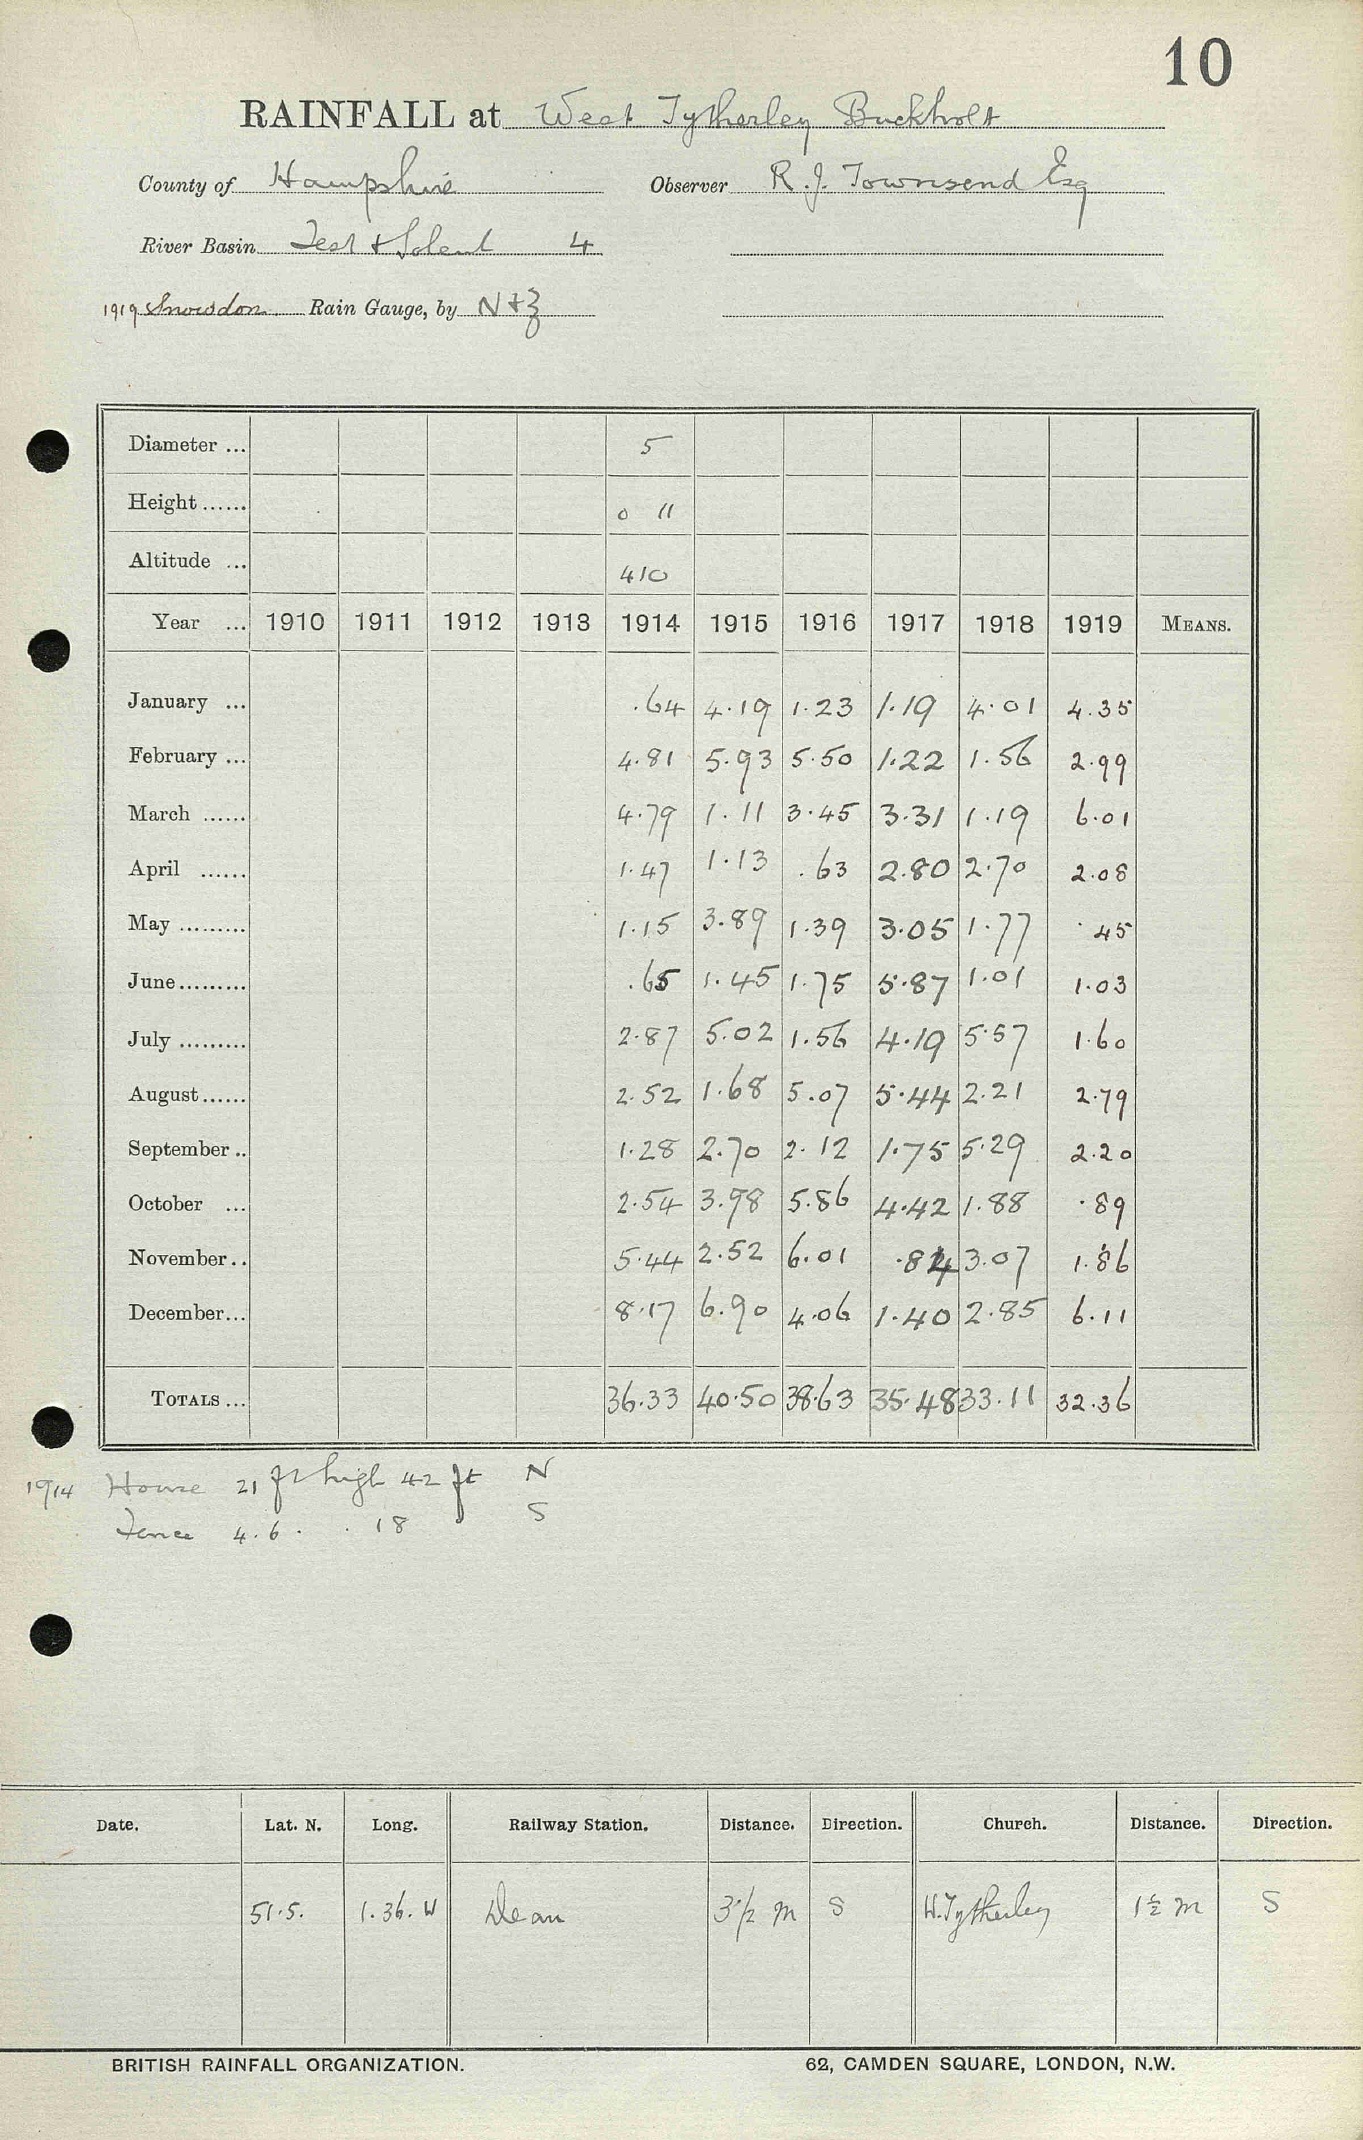 10
RAINFALL at West Tytherley Buckholt
County of Hampshire Observer R. J. Townsend Esq
River Basin Test & Solent 4
1919 Snowdon Rain Gauge, by N & Z
Diameter ... 5
Height ...... 0 11
Altitude ... 410
Year ... 1910 1911 1912 1913 1914 1915 1916 1917 1918 1919 MEANS.
January ... .64 4.19 1.23 1.19 4.01 4.35
February ... 4.81 5.93 5.50 1.22 1.56 2.99
March ...... 4.79 1.11 3.45 3.31 1.19 6.01
April ...... 1.47 1.13 .63 2.80 2.70 2.08
May ......... 1.15 3.89 1.39 3.05 1.77 .45
June......... .65 1.45 1.75 5.87 1.01 1.03
July ......... 2.87 5.02 1.56 4.19 5.57 1.60
August...... 2.52 1.68 5.07 5.44 2.21 2.79
September .. 1.28 2.70 2.12 1.75 5.29 2.20
October ... 2.54 3.98 5.86 4.42 1.88 .89
November.. 5.44 2.52 6.01 .84 3.07 1.86
December... 8.17 6.90 4.06 1.40 2.85 6.11
TOTALS ... 36.33 40.50 38.63 35.48 33.11 32.36
1914 House 21 ft high 42 ft N
Fence 4.6 . . 18 S
Date. Lat. N. Long. Railway Station. Distance. Direction. Church. Distance. Direction.
51.5. 1.36.W Dean 3 1/2 m S W. Tytherley 1 1/2 m S
BRITISH RAINFALL ORGANIZATION. 62, CAMDEN SQUARE, LONDON, N.W.